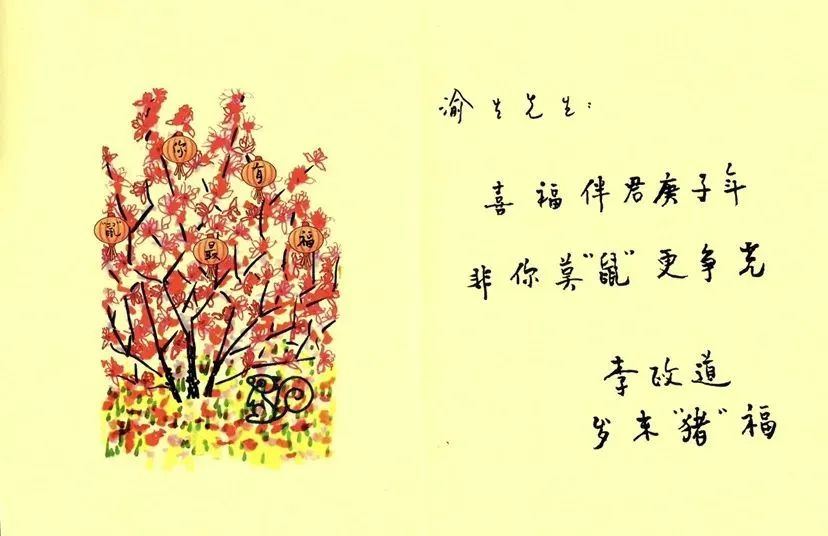 "鼠"
你
最
有
福
渝生先生：
喜福伴君庚子年
非你莫"鼠"更争光
李政道
岁末"猪"福